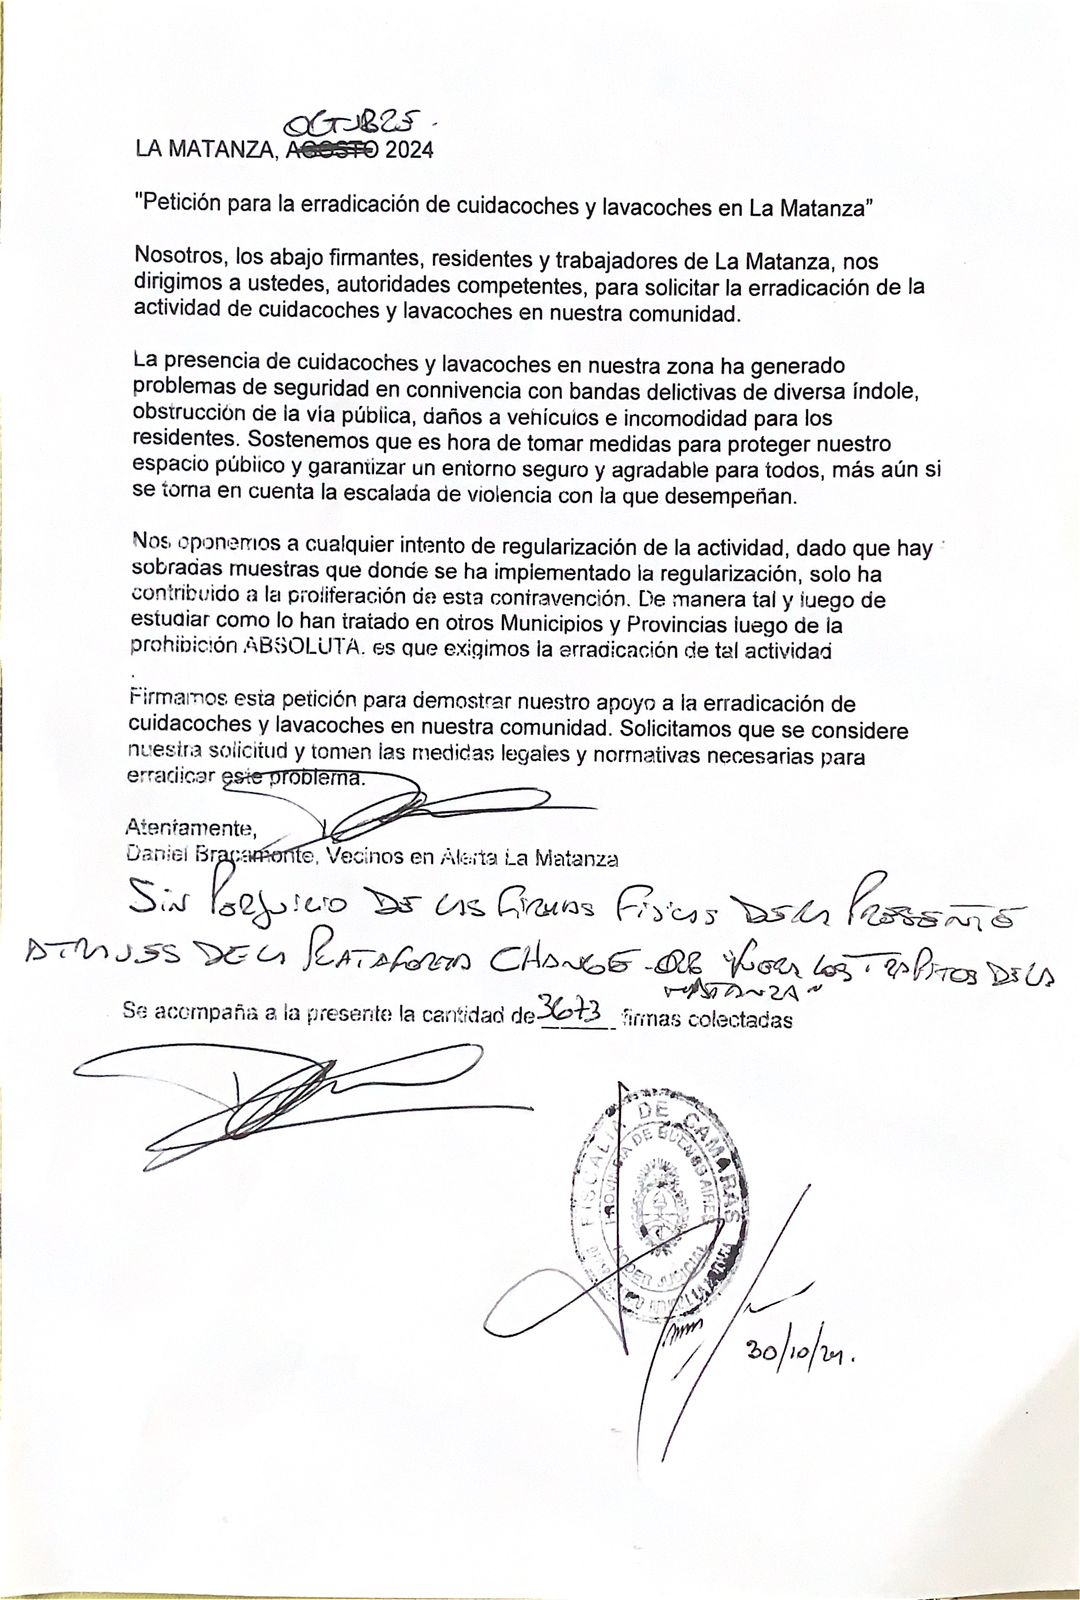 OCTUBRE.
LA MATANZA, AGOSTO 2024
"Petición para la erradicación de cuidacoches y lavacoches en La Matanza"
Nosotros, los abajo firmantes, residentes y trabajadores de La Matanza, nos
dirigimos a ustedes, autoridades competentes, para solicitar la erradicación de la
actividad de cuidacoches y lavacoches en nuestra comunidad.
La presencia de cuidacoches y lavacoches en nuestra zona ha generado
problemas de seguridad en connivencia con bandas delictivas de diversa índole,
obstrucción de la vía pública, daños a vehículos e incomodidad para los
residentes. Sostenemos que es hora de tomar medidas para proteger nuestro
espacio público y garantizar un entorno seguro y agradable para todos, más aún si
se toma en cuenta la escalada de violencia con la que desempeñan.
Nos oponemos a cualquier intento de regularización de la actividad, dado que hay
sobradas muestras que donde se ha implementado la regularización, solo ha
contribuido a la proliferación de esta contravención. De manera tal y luego de
estudiar como lo han tratado en otros Municipios y Provincias luego de la
prohibición ABSOLUTA. es que exigimos la erradicación de tal actividad
.
Firmamos esta petición para demostrar nuestro apoyo a la erradicación de
cuidacoches y lavacoches en nuestra comunidad. Solicitamos que se considere
nuestra solicitud y tomen las medidas legales y normativas necesarias para
erradicar este problema.
Atentamente,
Daniel Bracamonte, Vecinos en Alerta La Matanza
SIN PERJUICIO DE LAS FIRMAS FISICAS DE LA PRESENTE
ATRAVES DE LA PLATAFORMA CHANGE.ORG "FUERA LOS TRAPITOS DE LA
MATANZA"
Se acompaña a la presente la cantidad de 3673 firmas colectadas
FISCALIA DE CAMARAS
PROVINCIA DE BUENOS AIRES
PODER JUDICIAL
30/10/24.